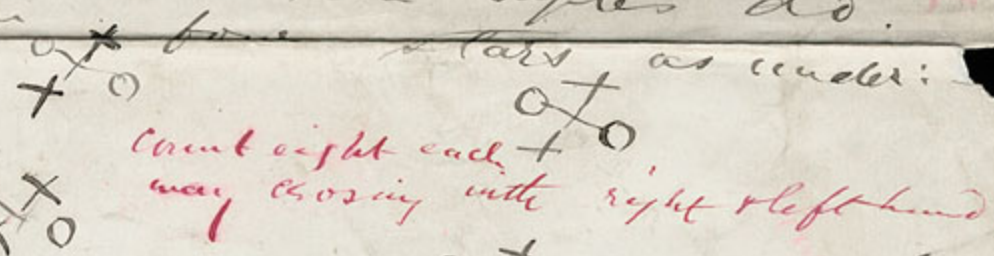 do.
four stars as under:
count eight each
way crossing with right & left hand